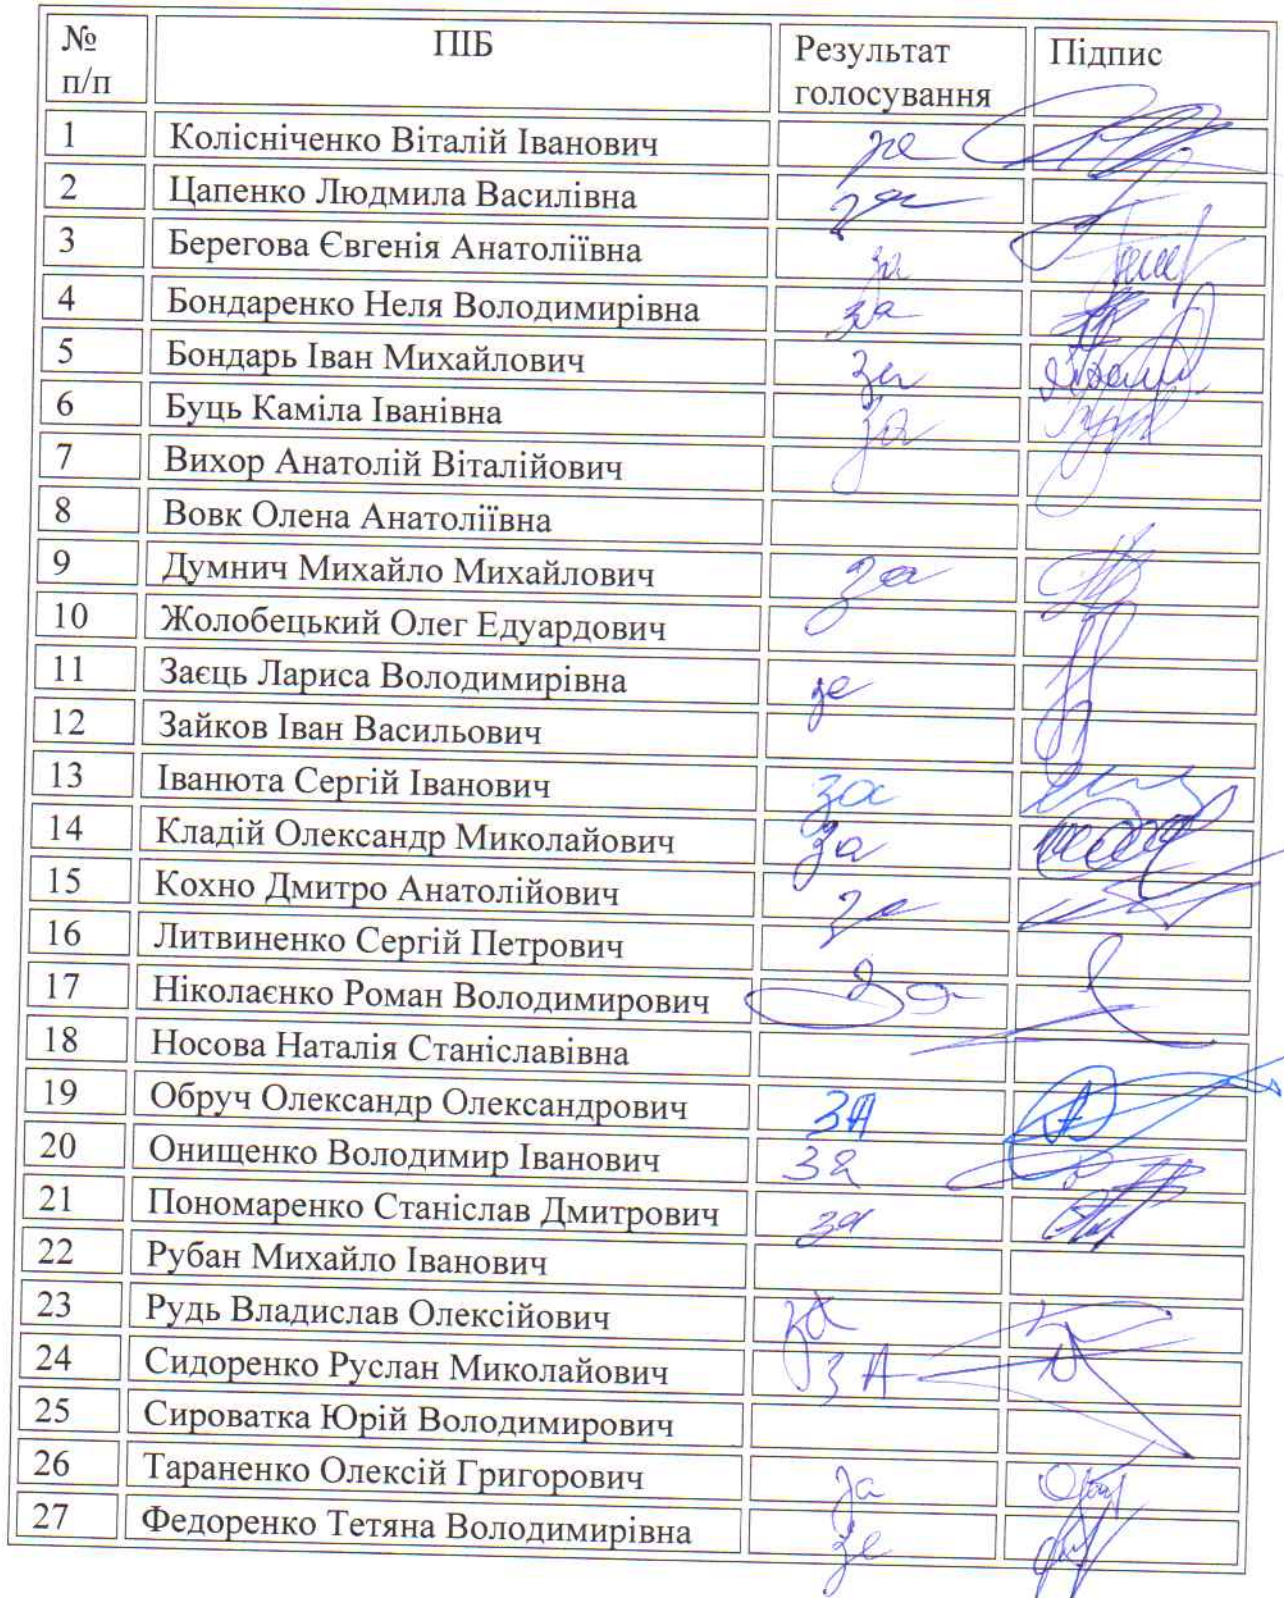 № п/п ПІБ Результат голосування Підпис
1 Колісніченко Віталій Іванович за
2 Цапенко Людмила Василівна за
3 Берегова Євгенія Анатоліївна за
4 Бондаренко Неля Володимирівна за
5 Бондарь Іван Михайлович за
6 Буць Каміла Іванівна за
7 Вихор Анатолій Віталійович
8 Вовк Олена Анатоліївна
9 Думнич Михайло Михайлович за
10 Жолобецький Олег Едуардович
11 Заєць Лариса Володимирівна за
12 Зайков Іван Васильович
13 Іванюта Сергій Іванович за
14 Кладій Олександр Миколайович за
15 Кохно Дмитро Анатолійович за
16 Литвиненко Сергій Петрович
17 Ніколаєнко Роман Володимирович за
18 Носова Наталія Станіславівна
19 Обруч Олександр Олександрович ЗА
20 Онищенко Володимир Іванович за
21 Пономаренко Станіслав Дмитрович за
22 Рубан Михайло Іванович
23 Рудь Владислав Олексійович за
24 Сидоренко Руслан Миколайович ЗА
25 Сироватка Юрій Володимирович
26 Тараненко Олексій Григорович за
27 Федоренко Тетяна Володимирівна за